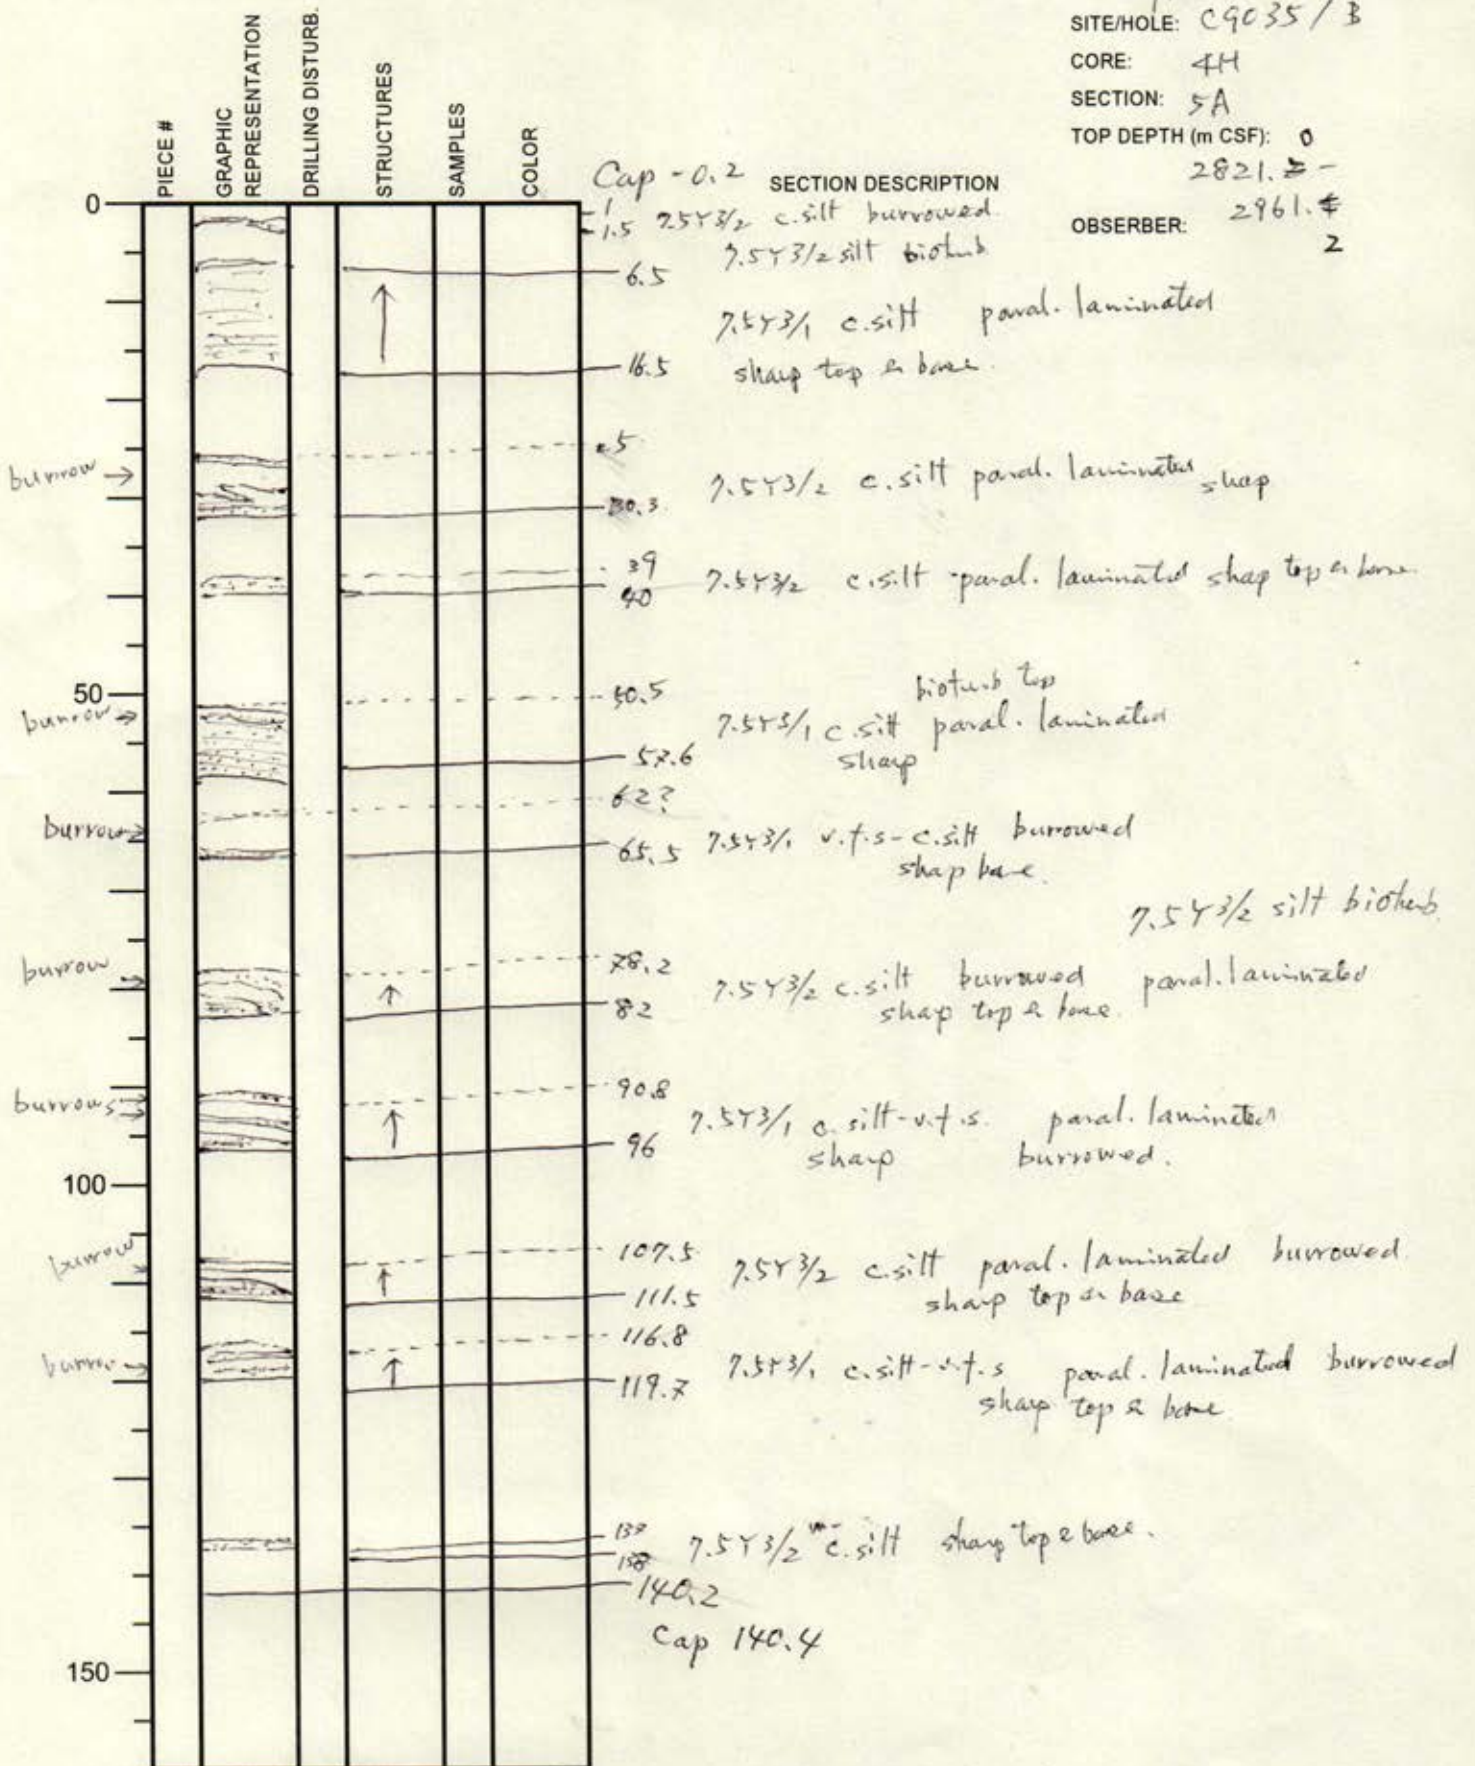 SITE/HOLE: C9035 / B
CORE: 4H
SECTION: 5A
TOP DEPTH (m CSF): 0
2821. -
2961.
2
OBSERBER:
PIECE #
GRAPHIC REPRESENTATION
DRILLING DISTURB.
STRUCTURES
SAMPLES
COLOR
Cap -0.2 SECTION DESCRIPTION
0
1
1.5 7.5Y3/2 c.silt burrowed
7.5Y3/2 silt bioturb
6.5
7.5Y3/1 c.silt paral. laminated
16.5 sharp top & base.
5
burrow →
7.5Y3/2 c.silt paral. laminated sharp
30.3
39
7.5Y3/2 c.silt paral. laminated shap top & base.
40
50
50.5
bioturb top
burrow →
7.5Y3/1 c.silt paral. laminated
57.6 sharp
62?
burrow
65.5 7.5Y3/1 v.f.s-c.silt burrowed
shap base.
7.5Y3/2 silt bioturb
burrow →
78.2
7.5Y3/2 c.silt burrowed paral. laminated
82 shap top & base.
90.8
burrows
7.5Y3/1 c.silt-v.f.s. paral. laminated
96 sharp burrowed.
100
107.5
burrow
7.5Y3/2 c.silt paral. laminated burrowed
111.5 sharp top & base
116.8
burrow →
7.5Y3/1 c.silt-v.f.s paral. laminated burrowed
119.7 sharp top & base
137
7.5Y3/2 c.silt sharp top & base.
138
140.2
Cap 140.4
150